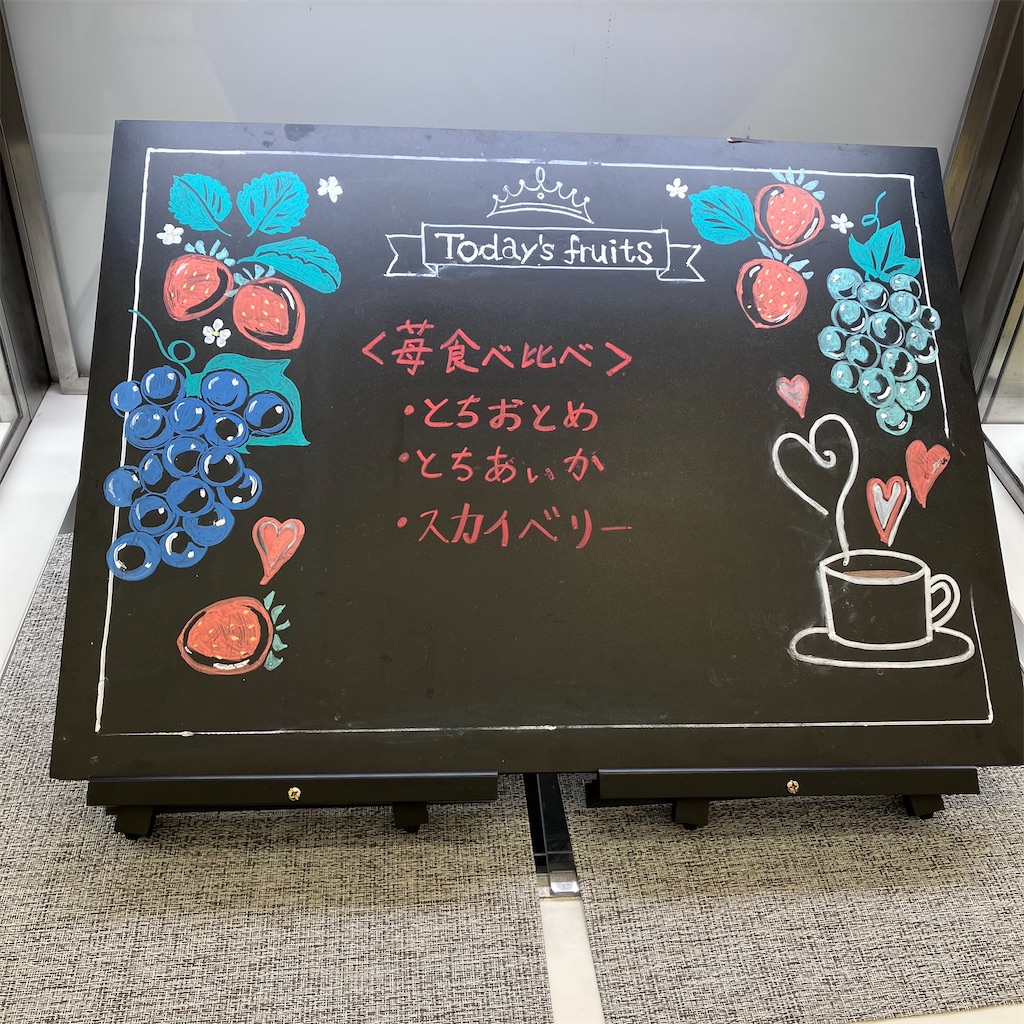 Today's fruits
<苺食べ比べ>
・とちおとめ
・とちあいか
・スカイベリー